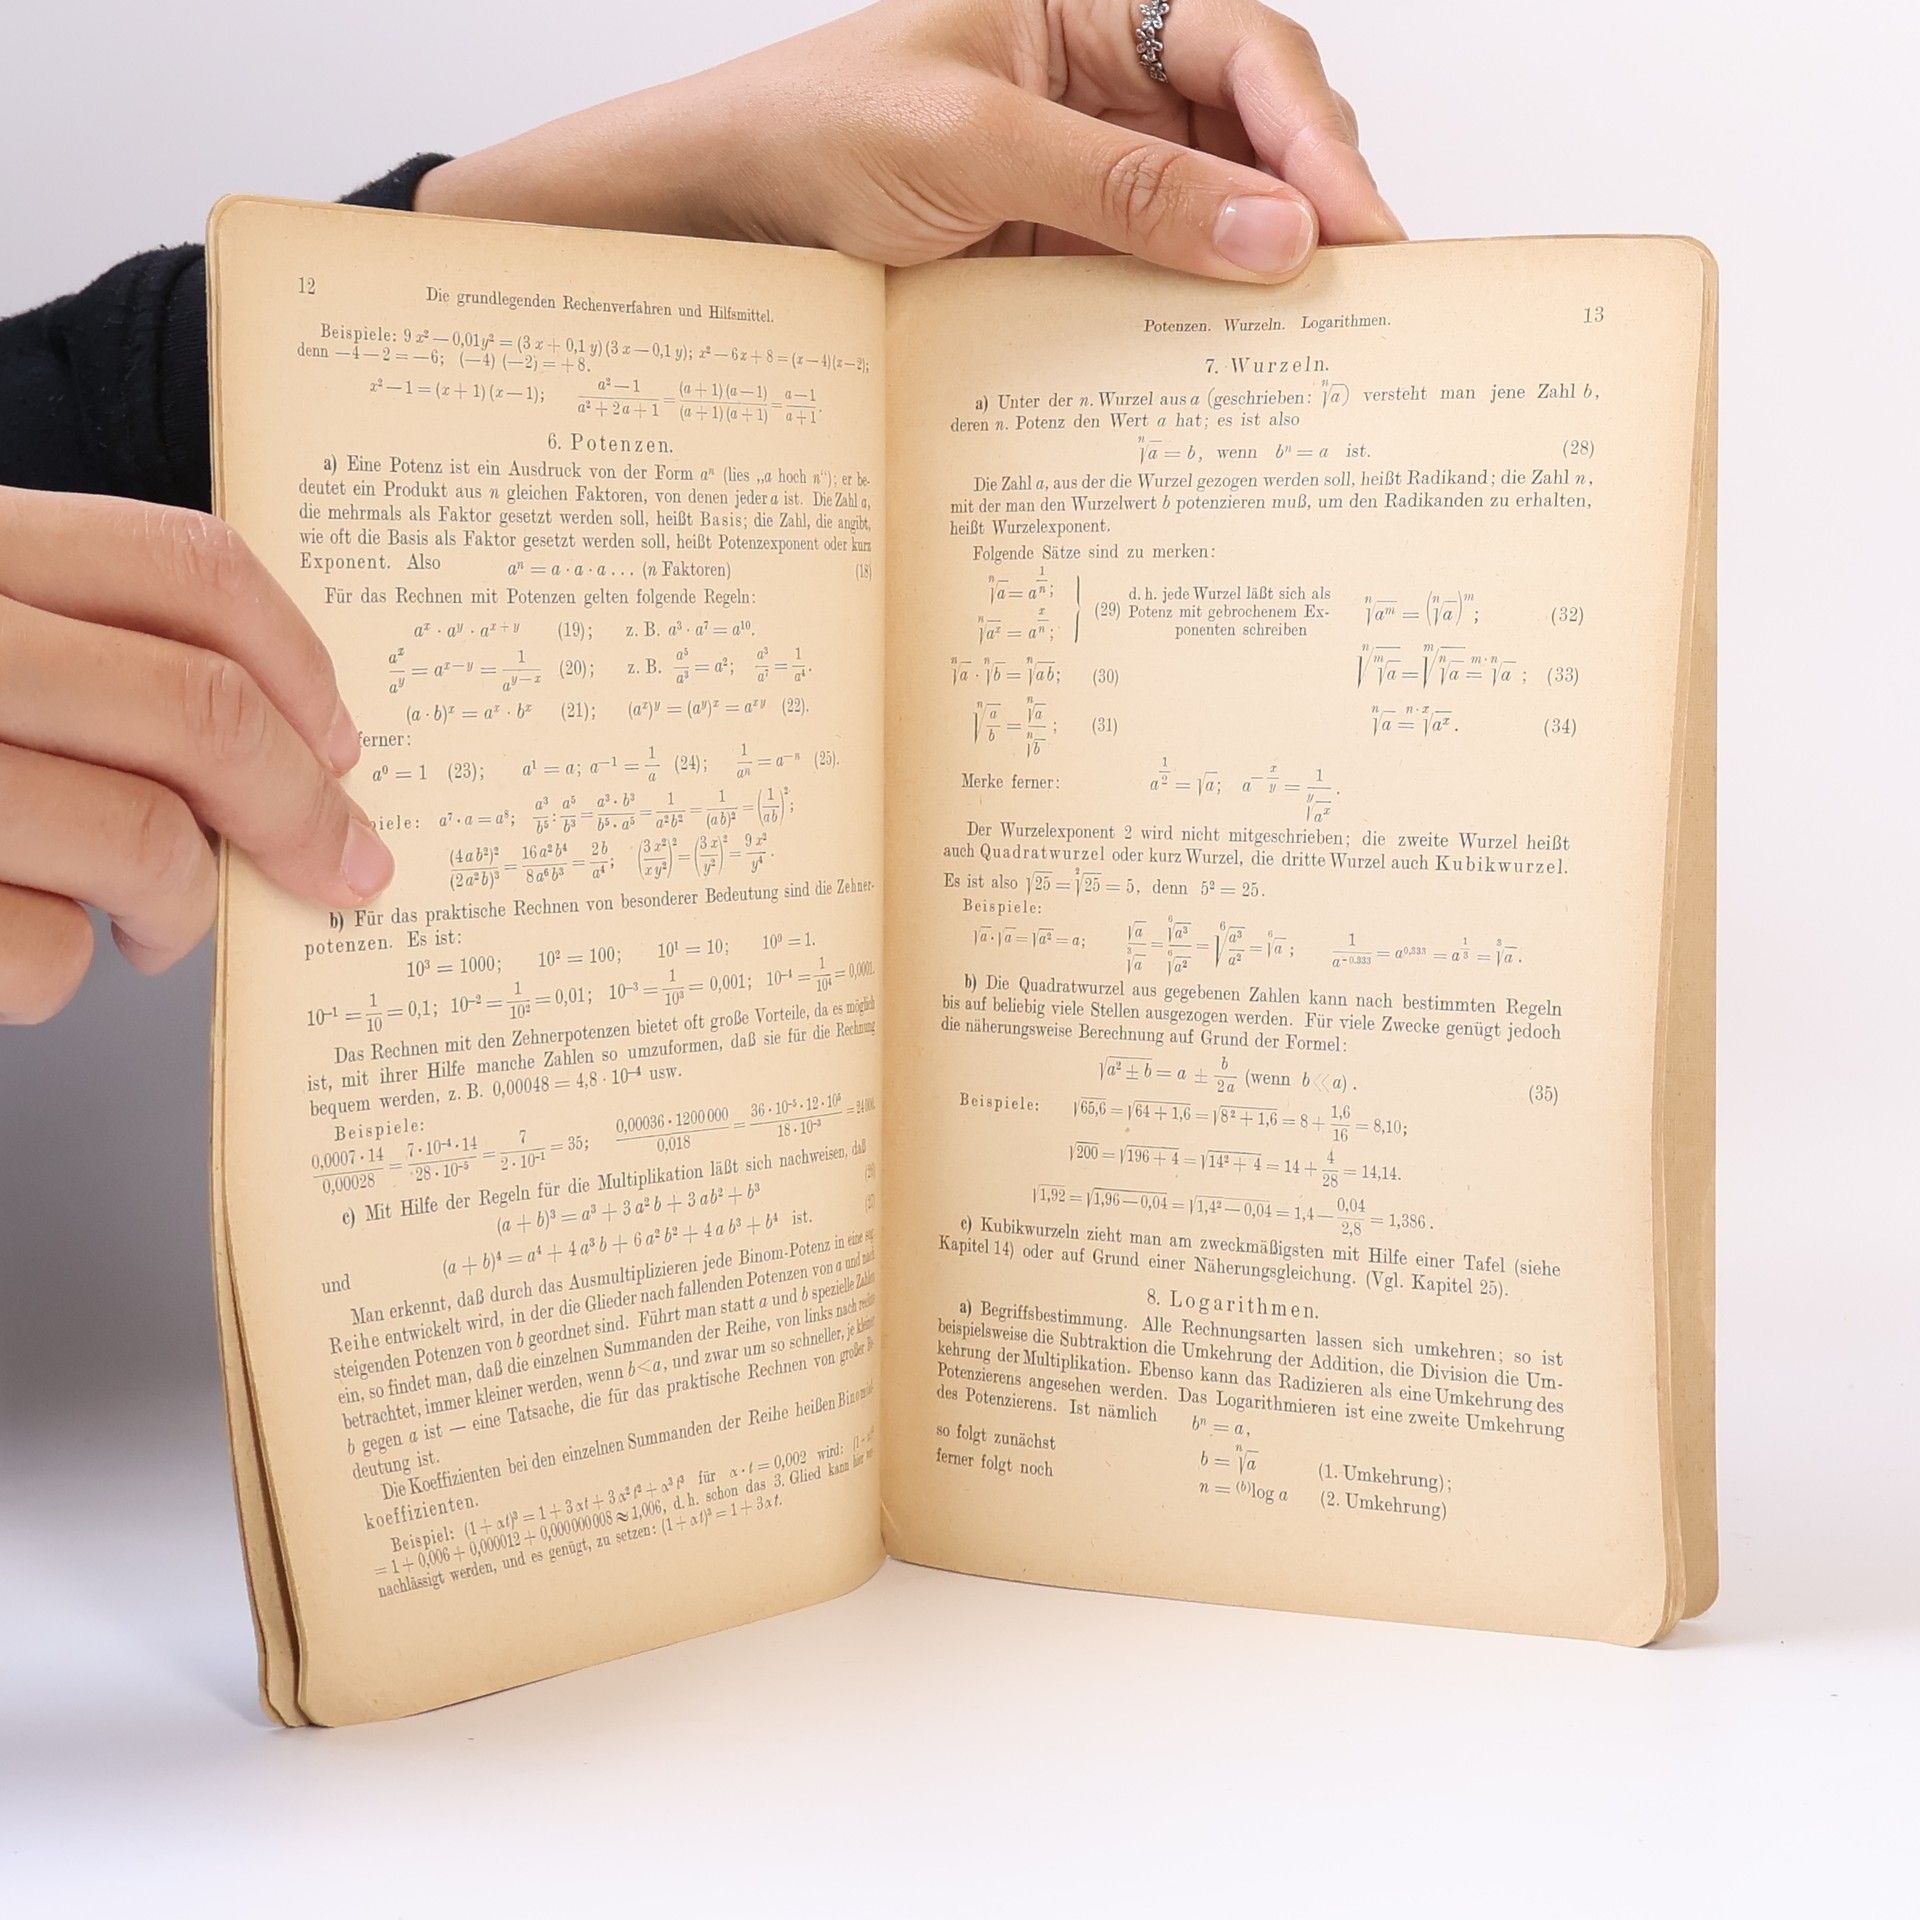 12
Die grundlegenden Rechenverfahren und Hilfsmittel.
Beispiele: 9 x² — 0,01y² = (3 x + 0,1 y) (3 x — 0,1 y); x² — 6x + 8 = (x — 4)(x — 2);
denn —4 — 2 = —6; (—4) (—2) = +8.
x² — 1 = (x + 1) (x — 1); (a² — 1)/(a² + 2a + 1) = ((a + 1)(a — 1))/((a + 1)(a + 1)) = (a — 1)/(a + 1).
6. Potenzen.
a) Eine Potenz ist ein Ausdruck von der Form aⁿ (lies „a hoch n“); er be-
deutet ein Produkt aus n gleichen Faktoren, von denen jeder a ist. Die Zahl a,
die mehrmals als Faktor gesetzt werden soll, heißt Basis; die Zahl, die angibt,
wie oft die Basis als Faktor gesetzt werden soll, heißt Potenzexponent oder kurz
Exponent. Also aⁿ = a · a · a . . . (n Faktoren) (18)
Für das Rechnen mit Potenzen gelten folgende Regeln:
a^x · a^y · a^(x + y) (19); z. B. a³ · a⁷ = a¹⁰.
a^x/a^y = a^(x—y) = 1/a^(y—x) (20); z. B. a⁵/a³ = a²; a³/a⁷ = 1/a⁴.
(a · b)^x = a^x · b^x (21); (a^x)^y = (a^y)^x = a^(xy) (22).
ferner:
a⁰ = 1 (23); a¹ = a; a⁻¹ = 1/a (24); 1/aⁿ = a⁻ⁿ (25).
piele: a⁷ · a = a⁸; a³/b⁵ : a⁵/b³ = (a³ · b³)/(b⁵ · a⁵) = 1/(a²b²) = 1/(ab)² = (1/ab)²;
(4ab²)²/(2a²b)³ = 16a²b⁴/8a⁶b³ = 2b/a⁴; (3x²/xy²)² = (3x/y²)² = 9x²/y⁴.
b) Für das praktische Rechnen von besonderer Bedeutung sind die Zehner-
potenzen. Es ist:
10³ = 1000; 10² = 100; 10¹ = 10; 10⁰ = 1.
10⁻¹ = 1/10 = 0,1; 10⁻² = 1/10² = 0,01; 10⁻³ = 1/10³ = 0,001; 10⁻⁴ = 1/10⁴ = 0,0001.
Das Rechnen mit den Zehnerpotenzen bietet oft große Vorteile, da es möglich
ist, mit ihrer Hilfe manche Zahlen so umzuformen, daß sie für die Rechnung
bequem werden, z. B. 0,00048 = 4,8 · 10⁻⁴ usw.
Beispiele:
(0,0007 · 14)/0,00028 = (7 · 10⁻⁴ · 14)/(28 · 10⁻⁵) = 7/(2 · 10⁻¹) = 35; (0,00036 · 1200000)/0,018 = (36 · 10⁻⁵ · 12 · 10⁵)/(18 · 10⁻³) =
c) Mit Hilfe der Regeln für die Multiplikation läßt sich nachweisen, daß
(a + b)³ = a³ + 3 a² b + 3 ab² + b³ (26)
und (a + b)⁴ = a⁴ + 4 a³ b + 6 a² b² + 4 a b³ + b⁴ ist. (27)
Man erkennt, daß durch das Ausmultiplizieren jede Binom-Potenz in eine
Reihe entwickelt wird, in der die Glieder nach fallenden Potenzen von a und nach
steigenden Potenzen von b geordnet sind. Führt man statt a und b spezielle Zahlen
ein, so findet man, daß die einzelnen Summanden der Reihe, von links nach rechts
betrachtet, immer kleiner werden, wenn b<a, und zwar um so schneller, je kleiner
b gegen a ist — eine Tatsache, die für das praktische Rechnen von großer Be-
deutung ist.
Die Koeffizienten bei den einzelnen Summanden der Reihe heißen Binomial-
koeffizienten.
Beispiel: (1 + αt)³ = 1 + 3 αt + 3 α² t² + α³ t³ für α · t = 0,002 wird:
= 1 + 0,006 + 0,000012 + 0,000000008 ≈ 1,006, d. h. schon das 3. Glied kann hier
nachlässigt werden, und es genügt, zu setzen: (1 + αt)³ = 1 + 3αt.
Potenzen. Wurzeln. Logarithmen.
13
7. Wurzeln.
a) Unter der n. Wurzel aus a (geschrieben: ⁿ√a) versteht man jene Zahl b,
deren n. Potenz den Wert a hat; es ist also
ⁿ√a = b, wenn bⁿ = a ist. (28)
Die Zahl a, aus der die Wurzel gezogen werden soll, heißt Radikand; die Zahl n,
mit der man den Wurzelwert b potenzieren muß, um den Radikanden zu erhalten,
heißt Wurzelexponent.
Folgende Sätze sind zu merken:
ⁿ√a = a^(1/n);
ⁿ√a^x = a^(x/n);
(29) d. h. jede Wurzel läßt sich als
Potenz mit gebrochenem Ex-
ponenten schreiben
ⁿ√a^m = (ⁿ√a)^m; (32)
ⁿ√a · ⁿ√b = ⁿ√ab; (30) ⁿ√(ᵐ√a) = ᵐ√(ⁿ√a) = ᵐ·ⁿ√a ; (33)
ⁿ√(a/b) = ⁿ√a/ⁿ√b ; (31) ⁿ√a = ⁿ·ˣ√a^x. (34)
Merke ferner: a^(1/2) = √a; a^(—x/y) = 1/ʸ√a^x.
Der Wurzelexponent 2 wird nicht mitgeschrieben; die zweite Wurzel heißt
auch Quadratwurzel oder kurz Wurzel, die dritte Wurzel auch Kubikwurzel.
Es ist also √25 = ²√25 = 5, denn 5² = 25.
Beispiele:
√a · √a = √a² = a; √a/³√a = ⁶√a³/⁶√a² = ⁶√(a³/a²) = ⁶√a ; 1/a^(—0.333) = a^(0,333) = a^(1/3) = ³√a .
b) Die Quadratwurzel aus gegebenen Zahlen kann nach bestimmten Regeln
bis auf beliebig viele Stellen ausgezogen werden. Für viele Zwecke genügt jedoch
die näherungsweise Berechnung auf Grund der Formel:
√(a² ± b) = a ± b/2a (wenn b ≪ a) . (35)
Beispiele: √65,6 = √(64 + 1,6) = √(8² + 1,6) = 8 + 1,6/16 = 8,10;
√200 = √(196 + 4) = √(14² + 4) = 14 + 4/28 = 14,14.
√1,92 = √(1,96 — 0,04) = √(1,4² — 0,04) = 1,4 — 0,04/2,8 = 1,386 .
c) Kubikwurzeln zieht man am zweckmäßigsten mit Hilfe einer Tafel (siehe
Kapitel 14) oder auf Grund einer Näherungsgleichung. (Vgl. Kapitel 25).
8. Logarithmen.
a) Begriffsbestimmung. Alle Rechnungsarten lassen sich umkehren; so ist
beispielsweise die Subtraktion die Umkehrung der Addition, die Division die Um-
kehrung der Multiplikation. Ebenso kann das Radizieren als eine Umkehrung des
Potenzierens angesehen werden. Das Logarithmieren ist eine zweite Umkehrung
des Potenzierens. Ist nämlich bⁿ = a,
so folgt zunächst b = ⁿ√a (1. Umkehrung);
ferner folgt noch n = ⁽ᵇ⁾log a (2. Umkehrung)